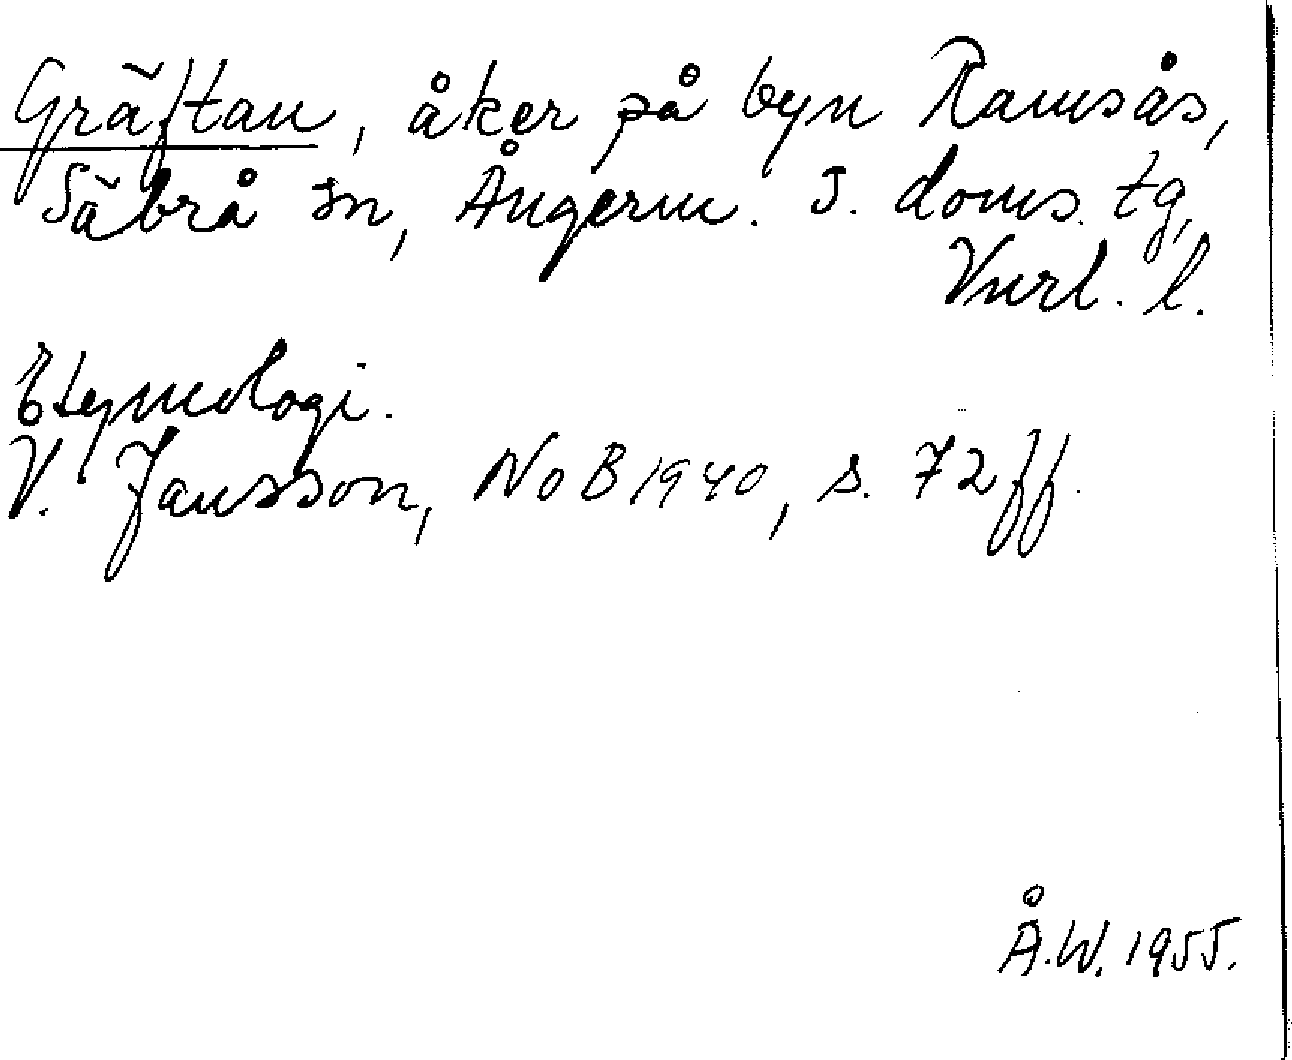 Gräftan, åker på byn Ramsås,
Säbrå sn, Ångerm. S. doms. tg,
Vnrl. l.
Etymologi.
V. Jansson, NoB 1940, s. 72 ff.
Å.W. 1955.